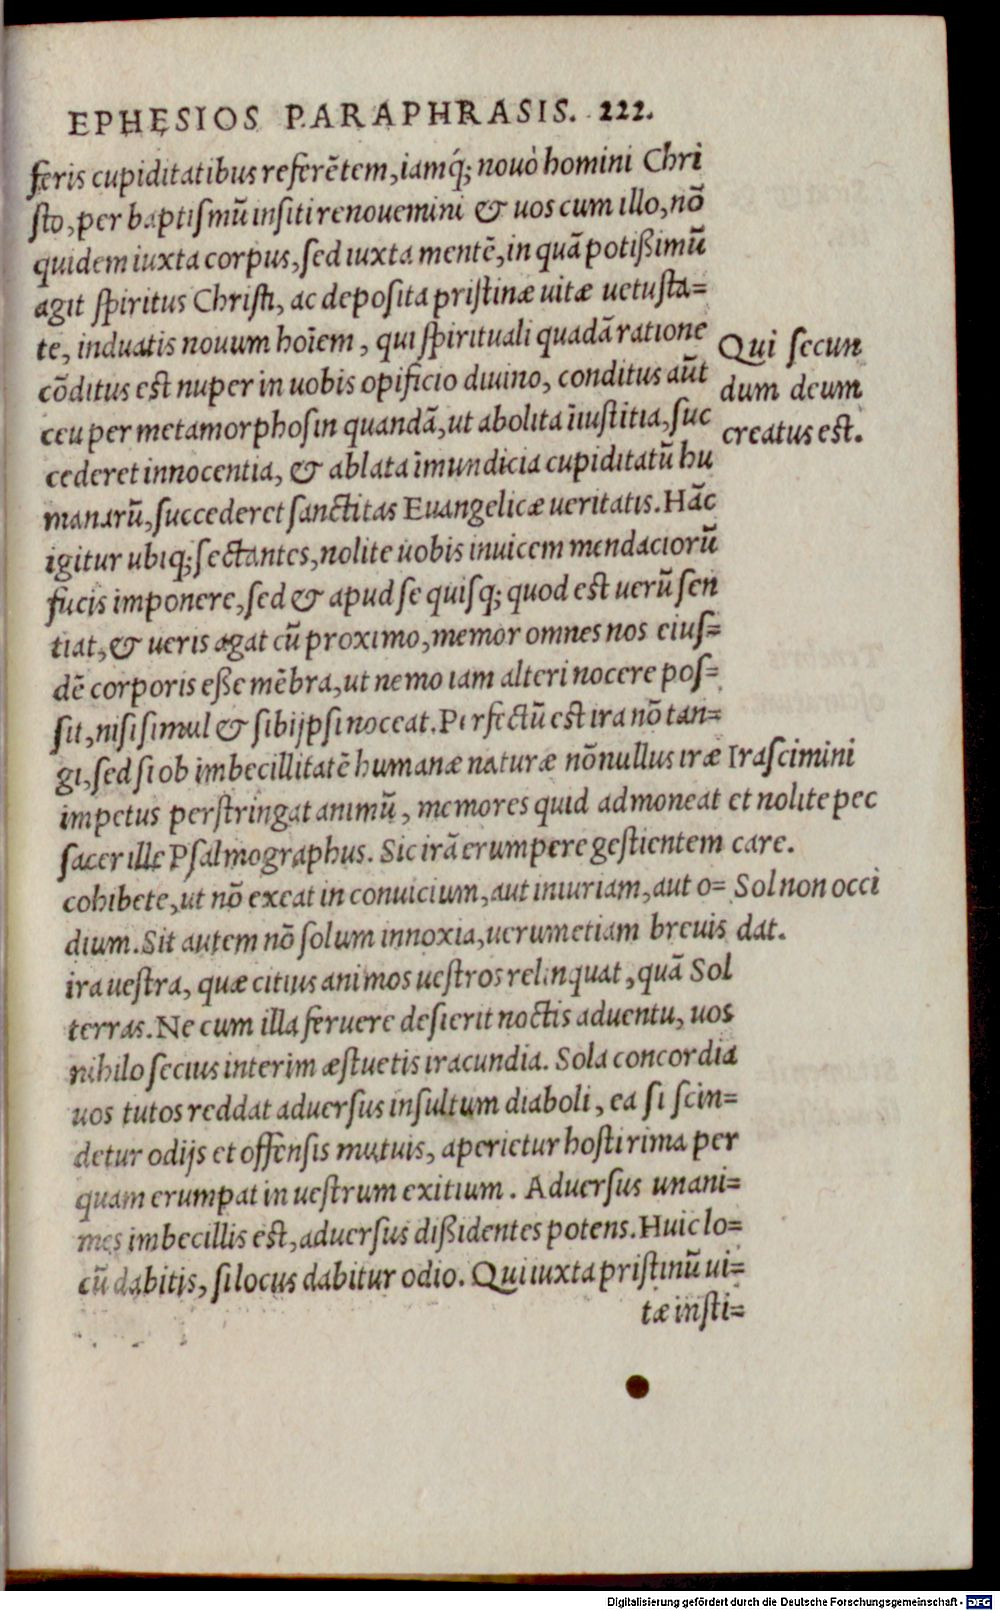 EPHESIOS PARAPHRASIS. 222.
feris cupiditatibus referẽtem, iamq́; nouo homini Chri
sto, per baptismũ insiti renouemini & uos cum illo, nõ
quidem iuxta corpus, sed iuxta mentẽ, in quã potißimũ
agit spiritus Christi, ac deposita pristinæ uitæ uetusta=
te, induatis nouum hoı̃em, qui spirituali quadã ratione
cõditus est nuper in uobis opificio diuino, conditus aũt
ceu per metamorphosin quandã, ut abolita ĩiustitia, suc
cederet innocentia, & ablata ĩmundicia cupiditatũ hu
manarũ, succederet sanctitas Euangelicæ ueritatis. Hãc
igitur ubiq; sectantes, nolite uobis inuicem mendaciorũ
fucis imponere, sed & apud se quisq; quod est uerũ sen
tiat, & ueris agat cũ proximo, memor omnes nos eius=
dẽ corporis eße mẽbra, ut nemo iam alteri nocere pos=
sit, nisi simul & sibijpsi noceat. Perfectũ est ira nõ tan=
gi, sed si ob imbecillitatẽ humanæ naturæ nõnullus iræ
impetus perstringat animũ, memores quid admoneat
sacer ille Psalmographus. Sic irã erumpere gestientem
cohibete, ut nõ exeat in conuicium, aut iniuriam, aut o=
dium. Sit autem nõ solum innoxia, uerumetiam breuis
ira uestra, quæ citius animos uestros relinquat, quã Sol
terras. Ne cum illa feruere desierit noctis aduentu, uos
nihilo secius interim æstuetis iracundia. Sola concordia
uos tutos reddat aduersus insultum diaboli, ea si scin=
detur odijs et offensis mutuis, aperietur hosti rima per
quam erumpat in uestrum exitium. Aduersus unani=
mes imbecillis est, aduersus dißidentes potens. Huic lo=
cũ dabitis, si locus dabitur odio. Qui iuxta pristinũ ui=
tæ insti=
Qui secun
dum deum
creatus est.
Irascimini
et nolite pec
care.
Sol non occi
dat.
Digitalisierung gefördert durch die Deutsche Forschungsgemeinschaft - DFG